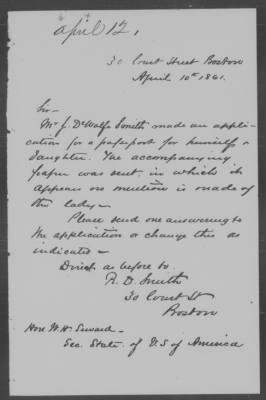 April 12,
30 Court Street Boston
April 10th 1861.
Sir—
Mr J. DeWolfe Smith made an appli-
cation for a passport for himself &
daughter. The accompanying
paper was sent, in which it
appears no mention is made of
the lady—
Please send one answering to
the application or change this as
indicated—
Direct as before to
R. D. Smith
30 Court St
Boston
Hon W. H. Seward—
Sec. State of U.S of America